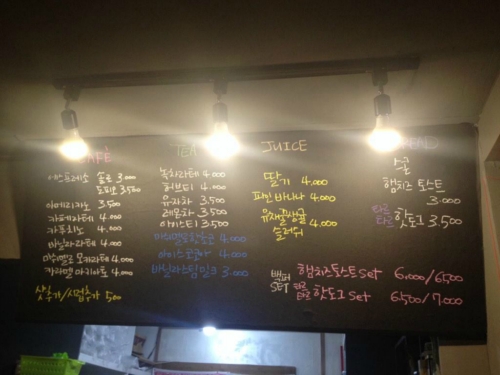 CAFÉ
에스프레소 솔로 3.000
도피오 3.500
아메리카노 3.500
카페라떼 4.000
카푸치노 4.000
바닐라라떼 4.000
마끼아또 모카라떼 4.000
카라멜 마키아또 4.000
샷추가/시럽추가 500
TEA
녹차라떼 4.000
허브티 4.000
유자차 3.500
레몬차 3.500
아이스티 3.500
4.000
아이스쵸코 4.000
바닐라스팀밀크 3.000
JUICE
딸기 4.000
파인바나나 4.000
유채꿀감귤 4.000
슬러쉬
BREAD
햄치즈 토스트
3.000
핫도그 3.500
SET
햄치즈토스트 Set 6.000/6.500
핫도그 Set 6.500/7.000